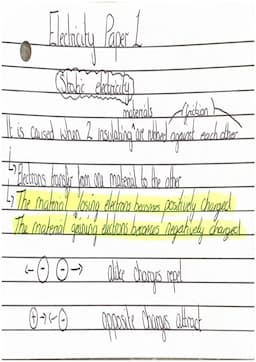 Electricity Paper 1
Static electricity
materials (friction)
It is caused when 2 insulating ^ are rubbed against each other
↳ Electrons transfer from one material to the other
↳ The material losing electrons becomes positively charged
The material gaining electrons becomes negatively charged
← ⊖ ⊖ → alike charges repel
⊕ → ← ⊖ opposite charges attract